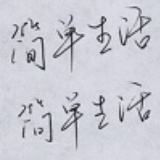 简单生活
简单生活